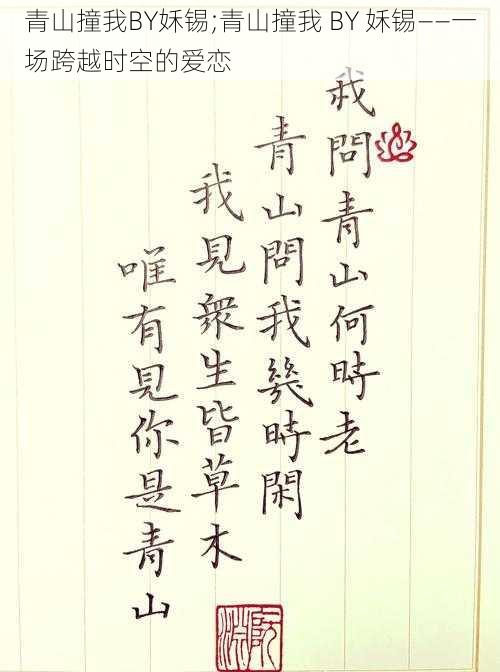 青山撞我BY妖锡;青山撞我 BY 妖锡——一
场跨越时空的爱恋
我問青山何時老
青山問我幾時閑
我見眾生皆草木
唯有見你是青山